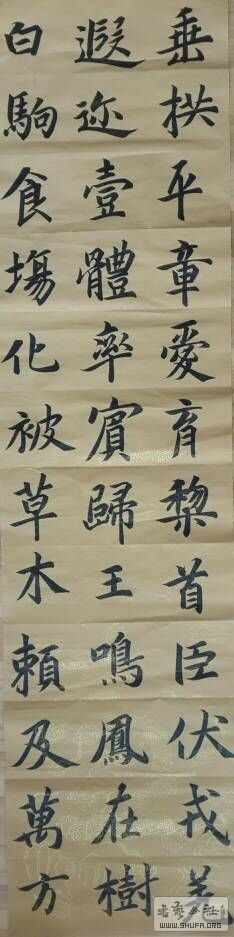 垂拱平章愛育黎首臣伏戎羌
遐迩壹體率賓歸王鳴鳳在樹
白駒食場化被草木賴及萬方
书艺公社
WWW.SHUFA.ORG